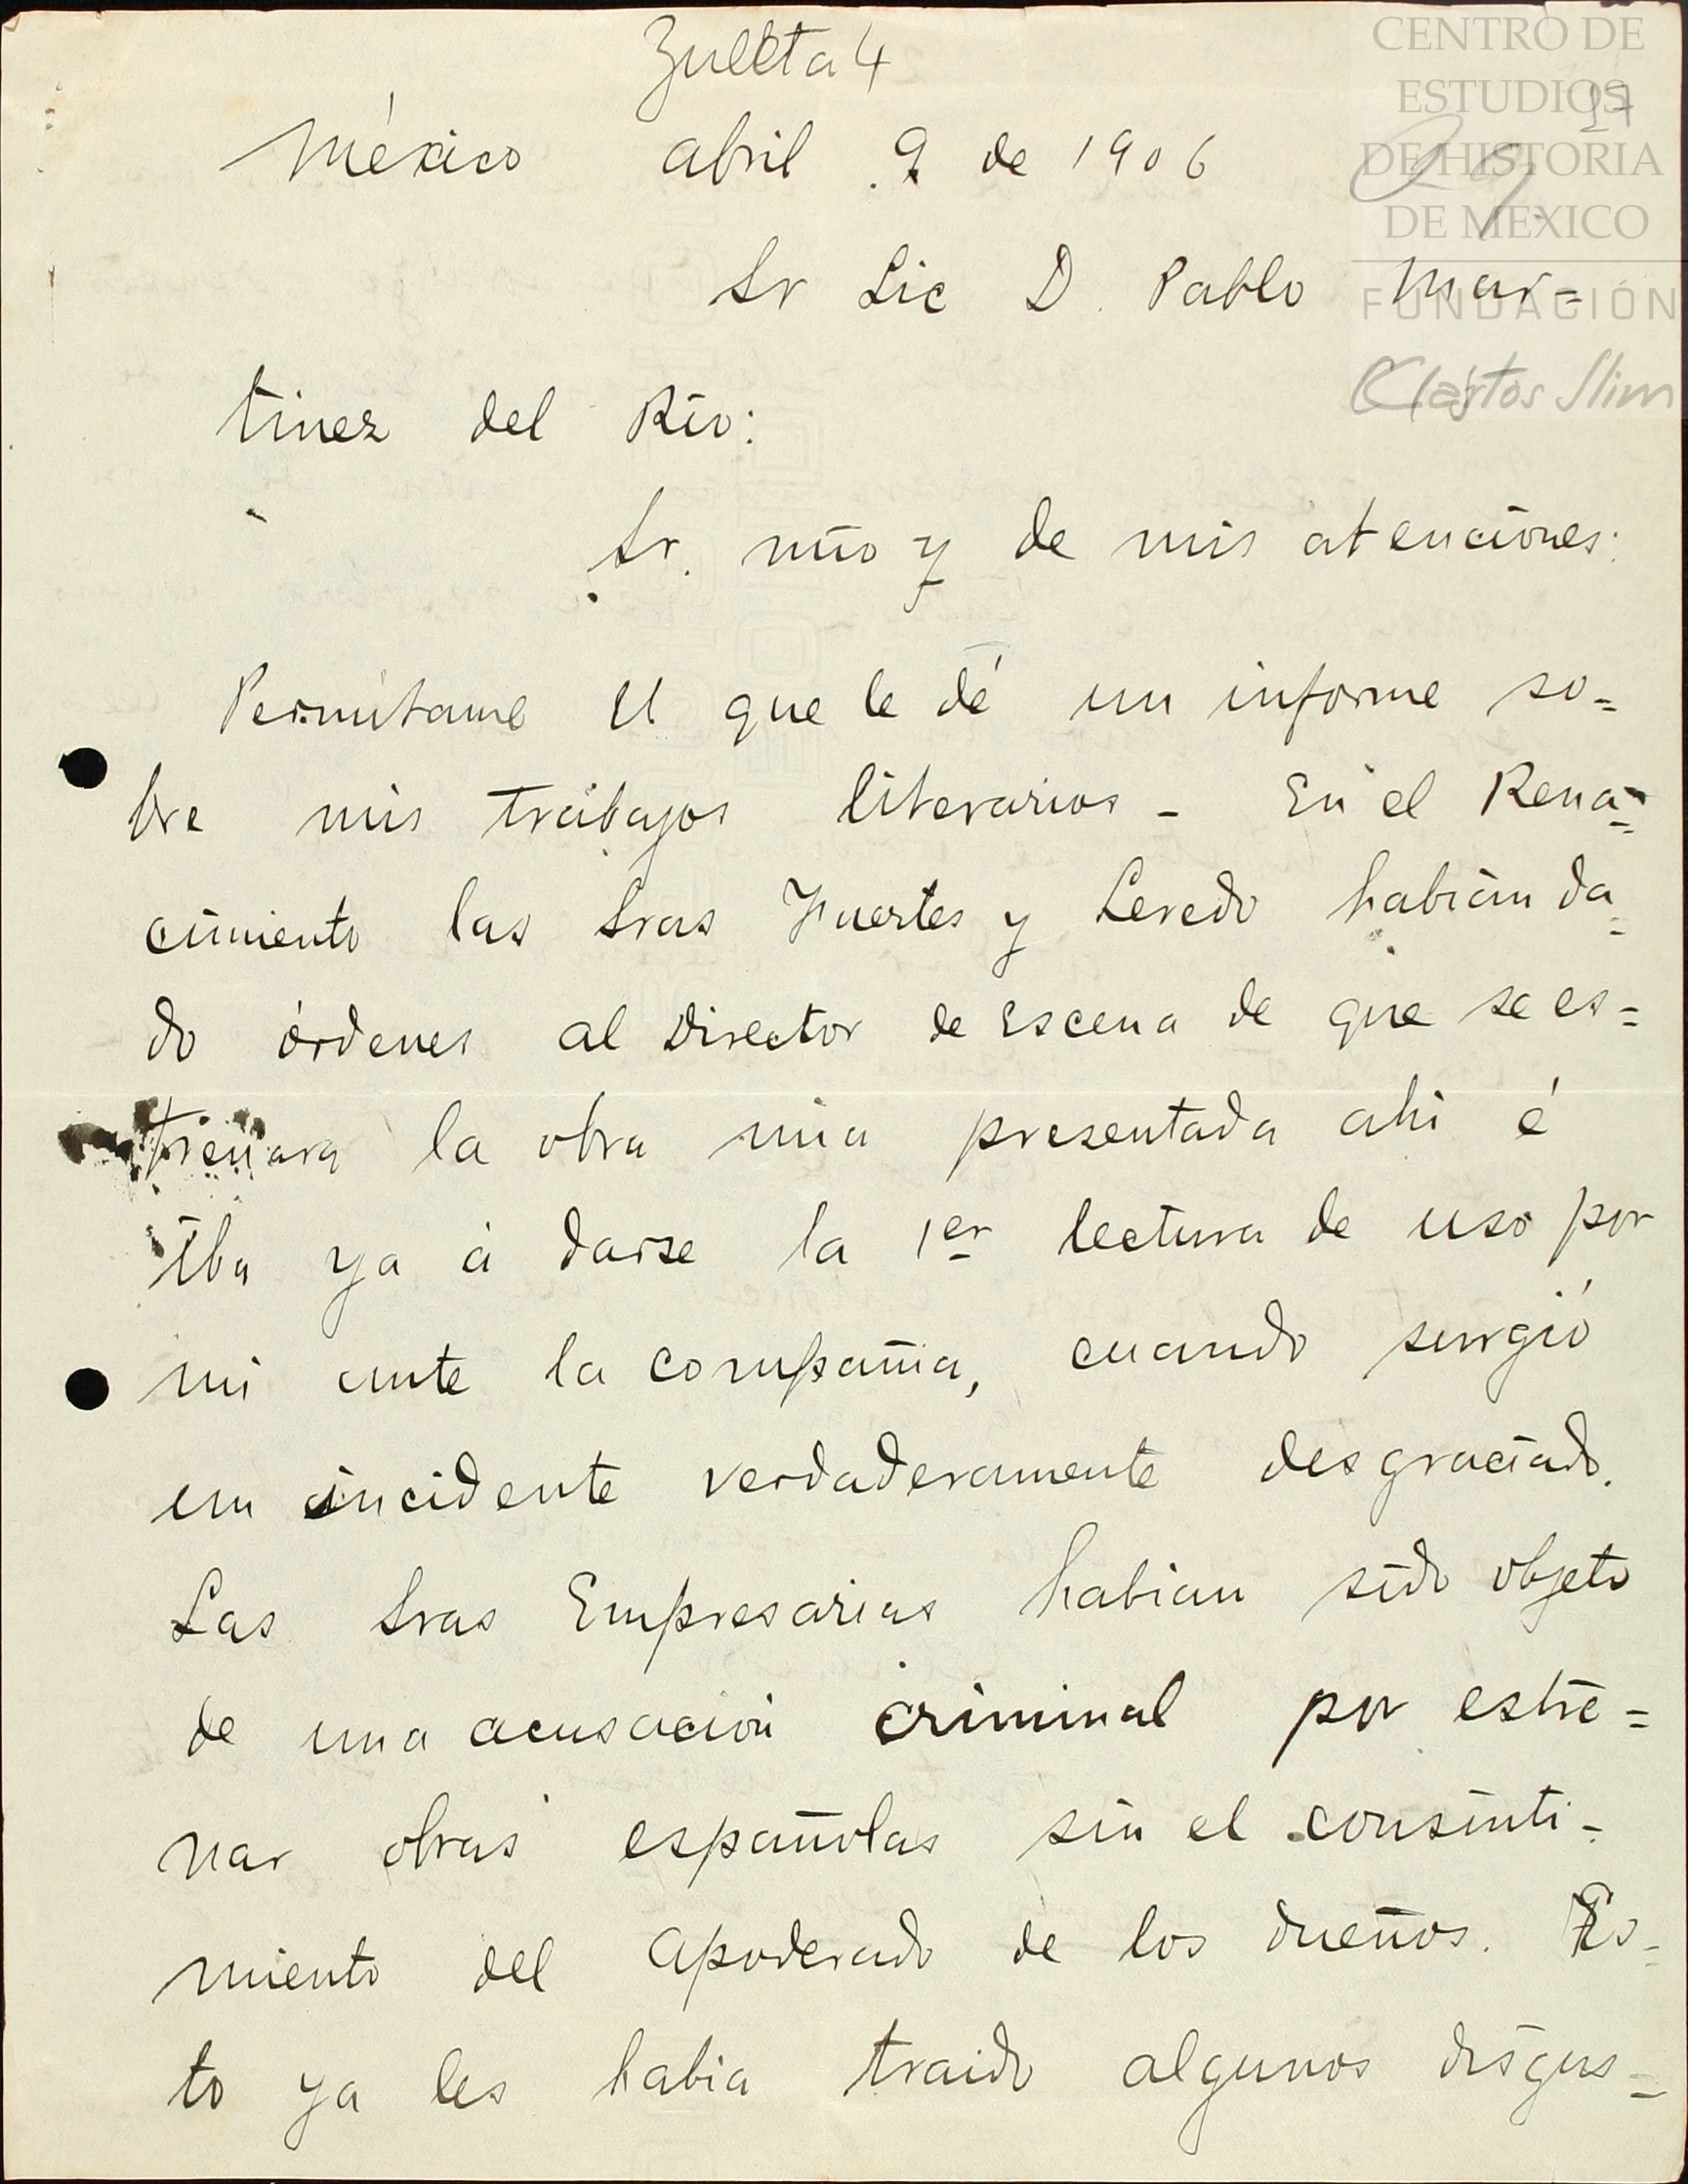 Zuleta 4
CENTRO DE
ESTUDIOS
DE HISTORIA
DE MEXICO
FUNDACIÓN
Carlos Slim
27
México abril 9 de 1906
Sr Lic D. Pablo Mar=
tinez del Rio:
Sr. mio y de mis atenciones:
Permítame U que le dé un informe so=
bre mis trabajos literarios - En el Rena=
cimiento las Sras Fuertes y Seredo habian da=
do órdenes al Director de Escena de que se es=
trenara la obra mia presentada ahi é
iba ya á darse la 1er lectura de uso por
mi ante la compañia, cuando surgió
un incidente verdaderamente desgraciado.
Las Sras Empresarias habian sido objeto
de una acusación criminal por estre=
nar obras españolas sin el consinti=
miento del apoderado de los dueños. Es=
to ya les habia traido algunos disgus=